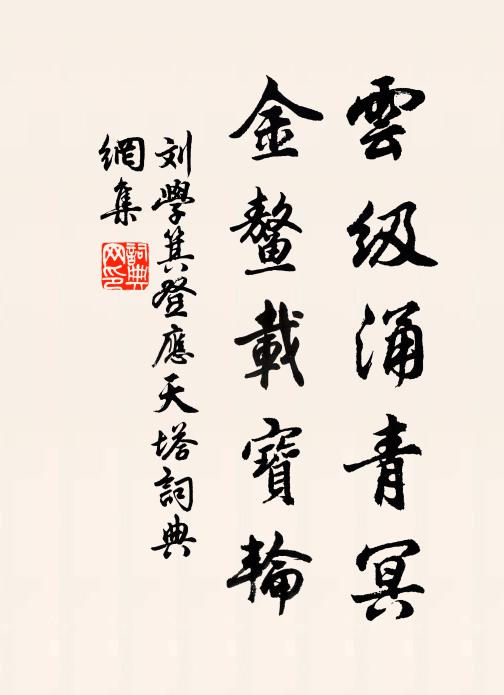 雲級涌青冥
金鰲載寶輪
刘學箕登應天塔詞典
網集
詞典网印